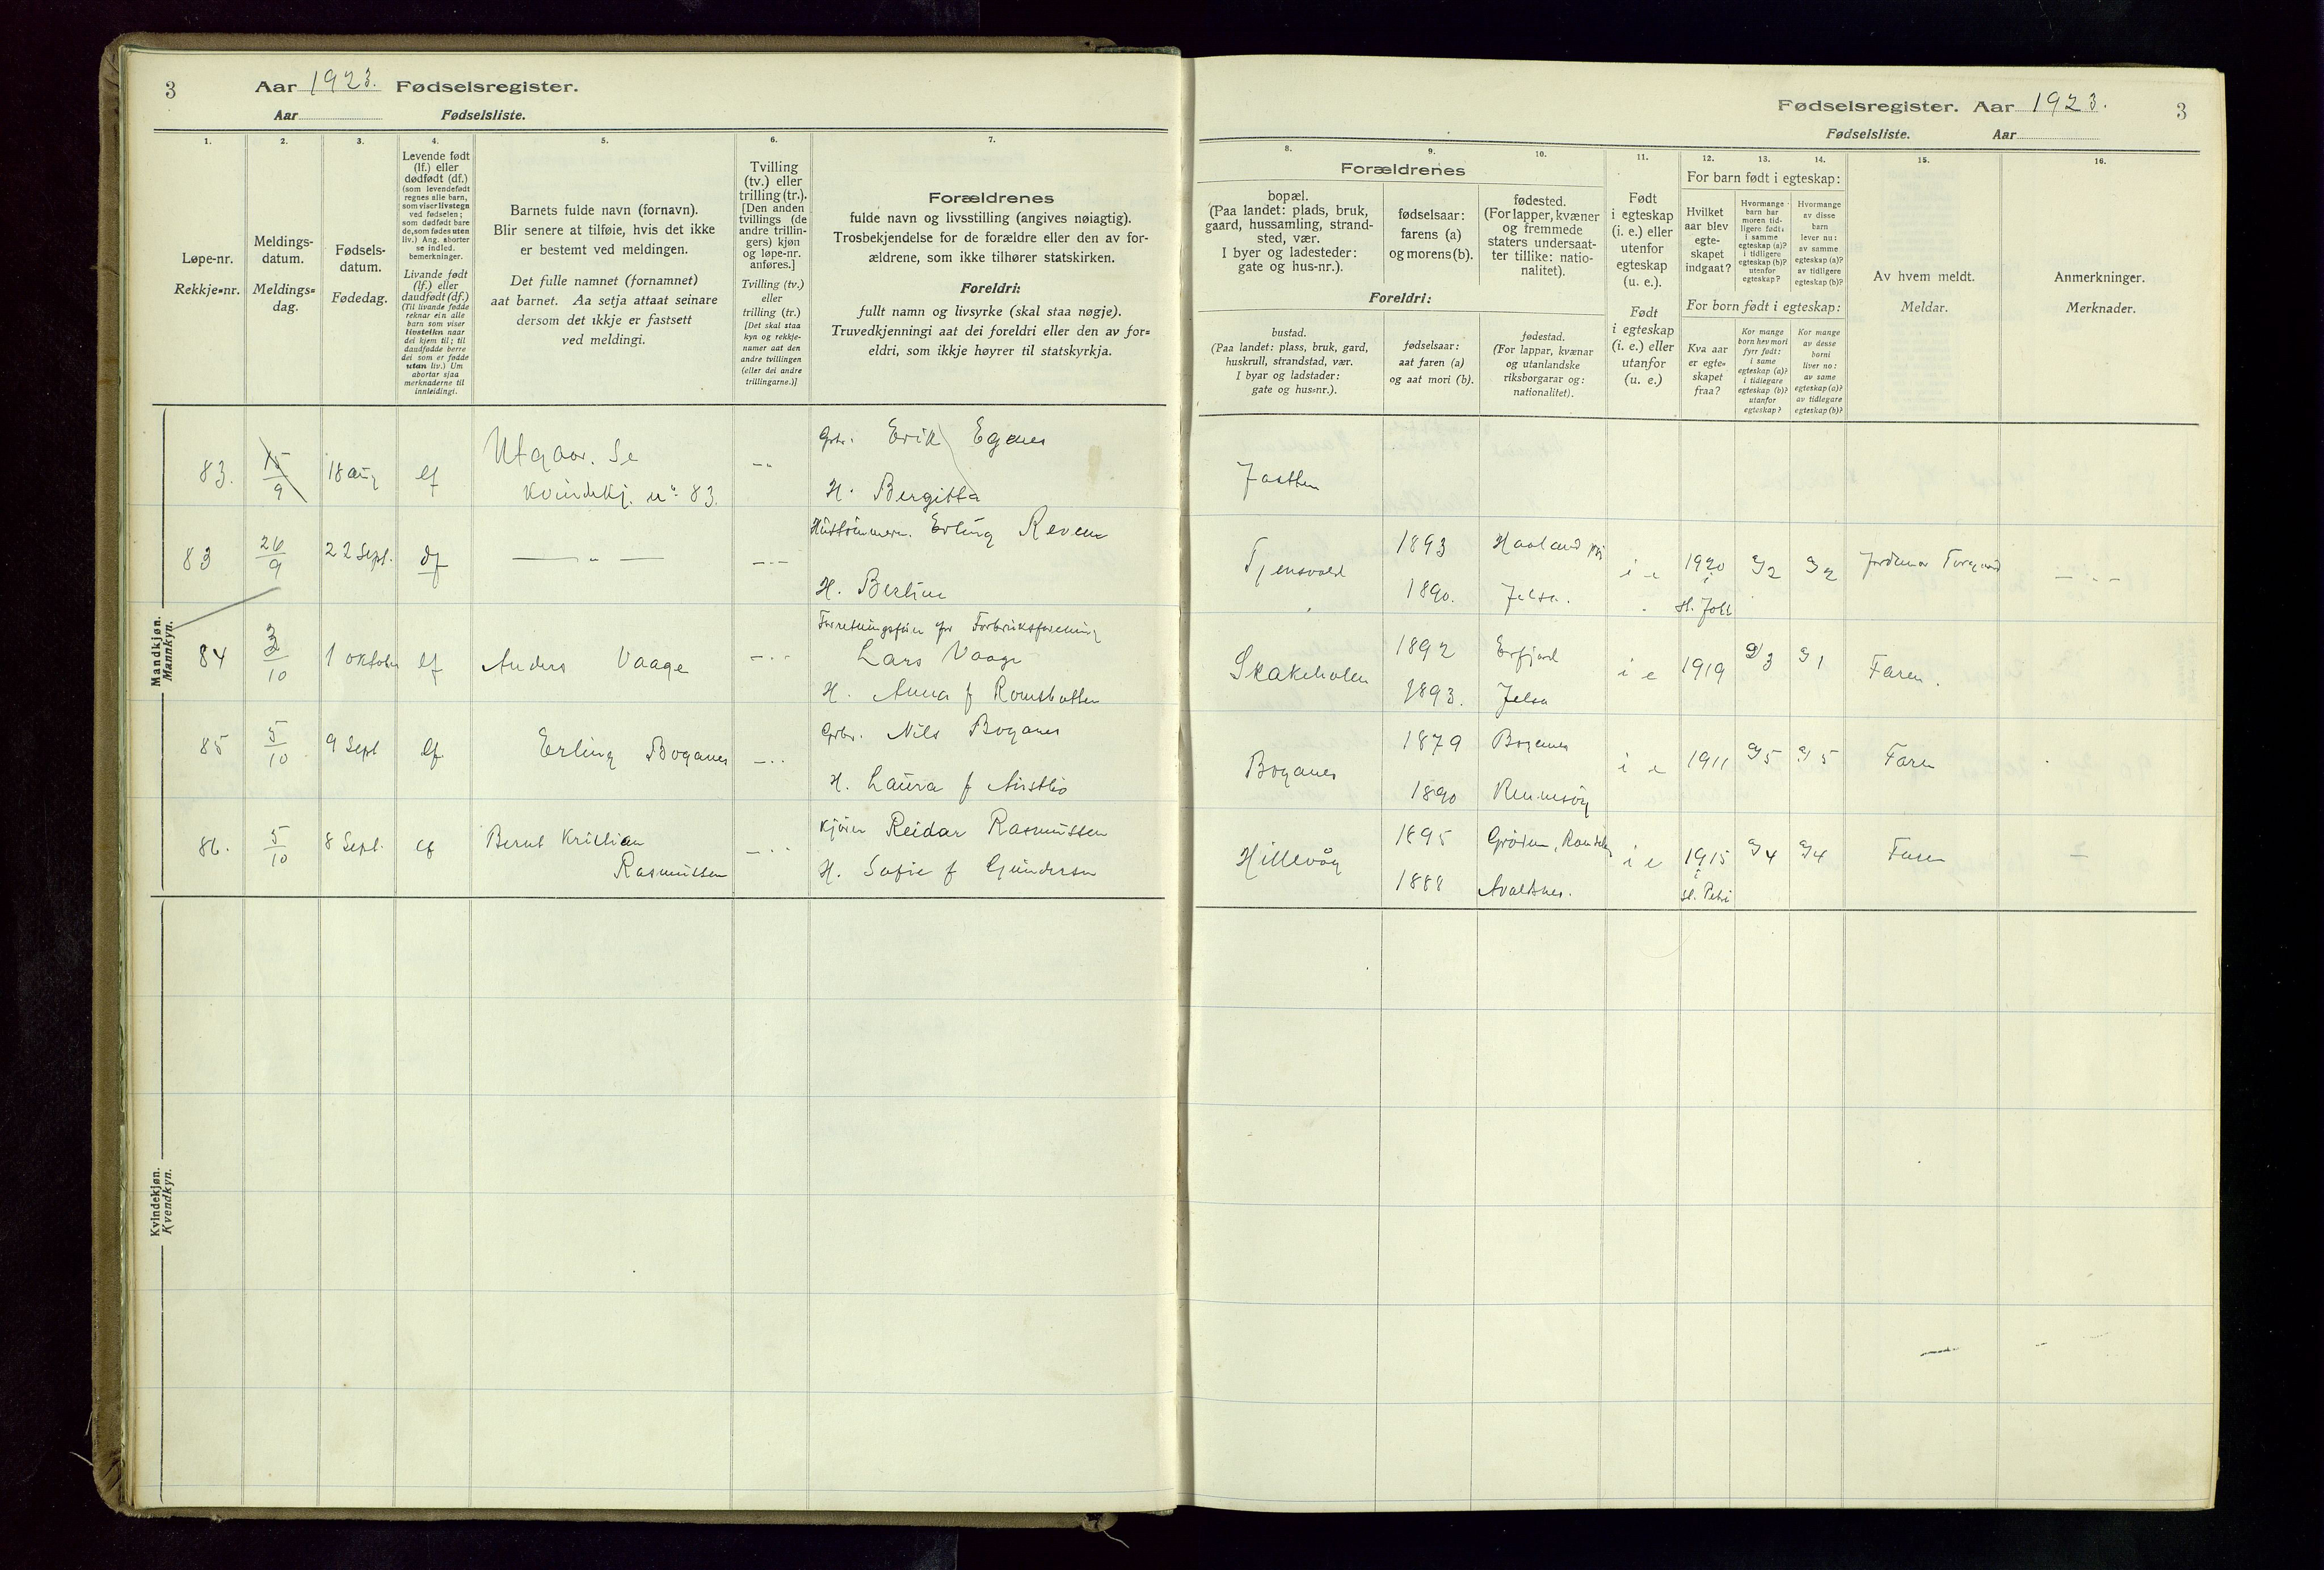 3
Aar 1923. Fødselsregister.
Aar Fødselsliste.
1.
2.
3.
4.
5.
6.
7.
Løpe-nr.
Rekkje=nr.
Meldings-
datum.
Meldings=
dag.
Fødsels-
datum.
Fødedag.
Levende født
(lf.) eller
dødfødt (df.)
(som levendefødt
regnes alle barn,
som viser livstegn
ved fødselen;
som dødfødt bare
de, som fødes uten
liv.) Ang. aborter
se indled.
bemerkninger.
Livande født
(lf.) eller
daudfødt (df.)
(Til livande fødde
reknar ein alle
barn som viser
livsteikn naar
dei kjem til; til
daudfødde berre
dei som er fødde
utan liv.) Um
abortar sjaa
merknaderne til
innleidingi.
Barnets fulde navn (fornavn).
Blir senere at tilføie, hvis det ikke
er bestemt ved meldingen.
Det fulle namnet (fornamnet)
aat barnet. Aa setja attaat seinare
dersom det ikkje er fastsett
ved meldingi.
Tvilling
(tv.) eller
trilling (tr.).
[Den anden
tvillings (de
andre trillin-
gers) kjøn
og løpe-nr.
anføres.]
Tvilling (tv.)
eller
trilling (tr.)
[Det skal staa
kyn og rekkje-
numer aat den
andre tvillingen
(eller dei andre
trillingarne.)]
Forældrenes
fulde navn og livsstilling (angives nøiagtig).
Trosbekjendelse for de forældre eller den av for-
ældrene, som ikke tilhører statskirken.
Foreldri:
fullt namn og livsyrke (skal staa nøgje).
Truvedkjenningi aat dei foreldri eller den av for=
eldri, som ikkje høyrer til statskyrkja.
Mandkjøn.
Mannkyn.
83. 15/9 18 aug lf Utgaar. Se
kvindekj. nr 83.
Gbr. Erik Egenes
H. Bergitta
83 26/9 22 Sept. df — „ —
Hustømmerm. Erling Reven
H. Bertine
84 3/10 1 oktober lf Anders Vaage
Forretningsfører for Forbruksforening
Lars Vaage
H. Anna f Romsbotten
85 5/10 9 Sept lf Erling Boganes
Gbr. Nils Boganes
H. Laura f Austbø
86. 5/10 8 Sept. lf Bernt Kristian
Rasmussen
Kjører Reidar Rasmussen
H. Sofie f Gundersen
Kvindekjøn.
Kvendkyn.
Fødselsregister. Aar 1923. 3
Fødselsliste. Aar
8.
9.
10.
11.
12.
13.
14.
15.
16.
Forældrenes
bopæl.
(Paa landet: plads, bruk,
gaard, hussamling, strand-
sted, vær.
I byer og ladesteder:
gate og hus-nr.).
fødselsaar:
farens (a)
og morens (b).
fødested.
(For lapper, kvæner
og fremmede
staters undersaat-
ter tillike: natio-
nalitet).
Foreldri:
bustad.
(Paa landet: plass, bruk, gard,
huskrull, strandstad, vær.
I byar og ladstader:
gate og hus=nr.).
fødselsaar:
aat faren (a)
og aat mori (b).
fødestad.
(For lappar, kvænar
og utanlandske
riksborgarar og:
nationalitet).
Født
i egteskap
(i. e.) eller
utenfor
egteskap
(u. e.).
Født
i egteskap
(i. e.) eller
utanfor
(u. e.)
For barn født i egteskap:
Hvilket
aar blev
egte-
skapet
indgaat?
Hvormange
barn har
moren tid-
ligere født:
i samme
egteskap (a)?
i tidligere
egteskap (b)?
utenfor
egteskap?
Hvormange
av disse
barn
lever nu:
av samme
egteskap (a)?
av tidligere
egteskap (b)?
For born født i egteskap:
Kva aar
er egte=
skapet
fraa?
Kor mange
born hev mori
fyrr født:
i same
egteskap (a)?
i tidlegare
egteskap (b)?
utanfor
egteskap?
Kor mange
av desse
borni
liver no:
av same
egteskap (a)?
av tidlegare
egteskap (b)?
Av hvem meldt.
Meldar.
Anmerkninger.
Merknader.
Jaatten
Tjensvold 1893 Haaland i e 1920 a/2 a/2 Jordmor
1890. Jelsa. St. Joh
Skakeholen 1892 Erfjord i e 1919 a/3 a/1 Faren.
1893. Jelsa
Boganes 1879 Boganes i e 1911 a/5 a/5 Faren
1890 Rennesøy
Hillevåg 1895 i e 1915 a/4 a/4 Faren —
1888 Avaldsnes. St. Petri